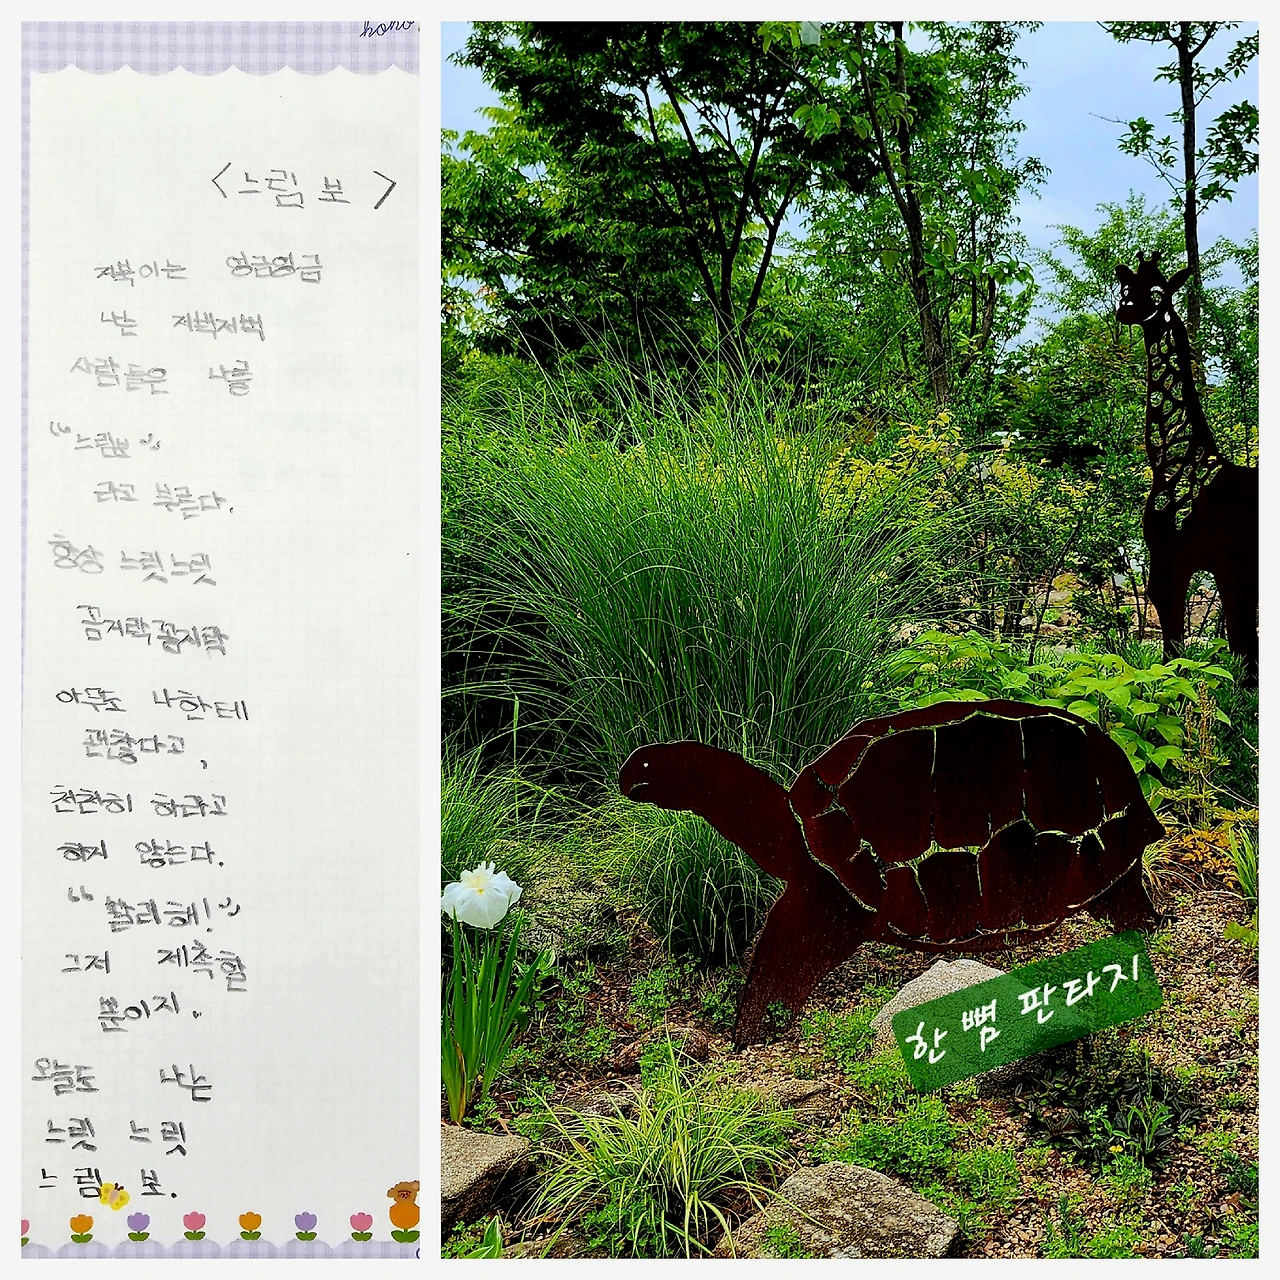 hoho
<느림보>
거북이는 엉금엉금
나는 저벅저벅
사람들은 나를
"느림보"
라고 부른다.
항상 느릿느릿
꼼지락꼼지락
아무도 나한테
괜찮다고,
천천히 하라고
하지 않는다.
"빨리해!"
그저 제촉함
뿐이지.
오늘도 나는
느릿 느릿
느림보.
한 뼘 판타지